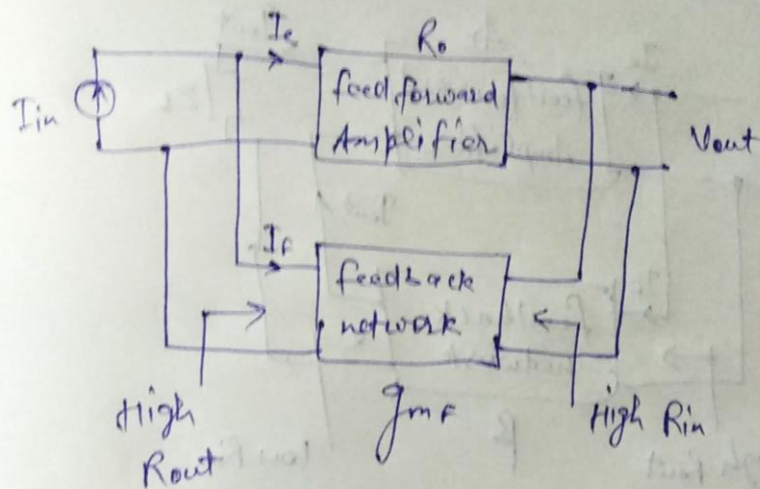 Ie
R₀
Iin
feed forward
Amplifier
Vout
IF
feedback
network
High
Rout
gmF
High Rin